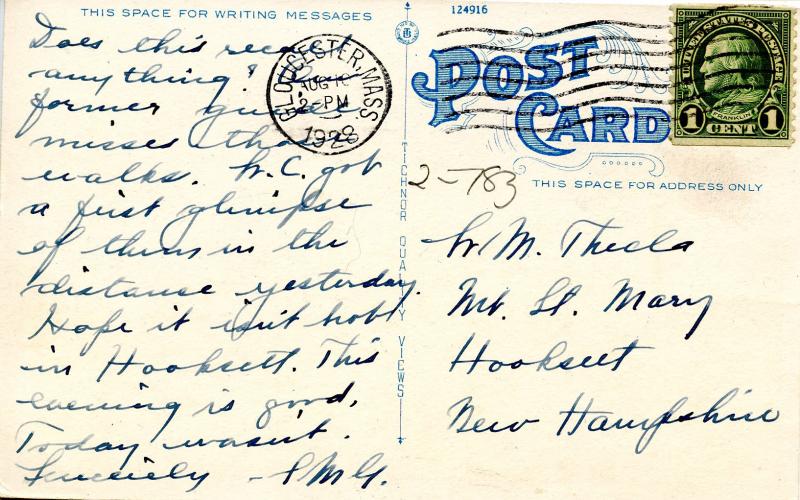 THIS SPACE FOR WRITING MESSAGES
Does this recall
anything? Your
former guide
misses those
walks. W. C. got
a first glimpse
of them in the
distance yesterday.
Hope it isn't hot
in Hooksett. This
evening is good,
Today wasn't.
Sincerely - S M G.
TICHNOR QUALITY VIEWS
124916
GLOUCESTER, MASS
AUG
2-PM
1928
POST
CARD
UNITED STATES POSTAGE
FRANKLIN
1 CENT 1
2-783
THIS SPACE FOR ADDRESS ONLY
M. Thecla
Mt. St. Mary
Hooksett
New Hampshire